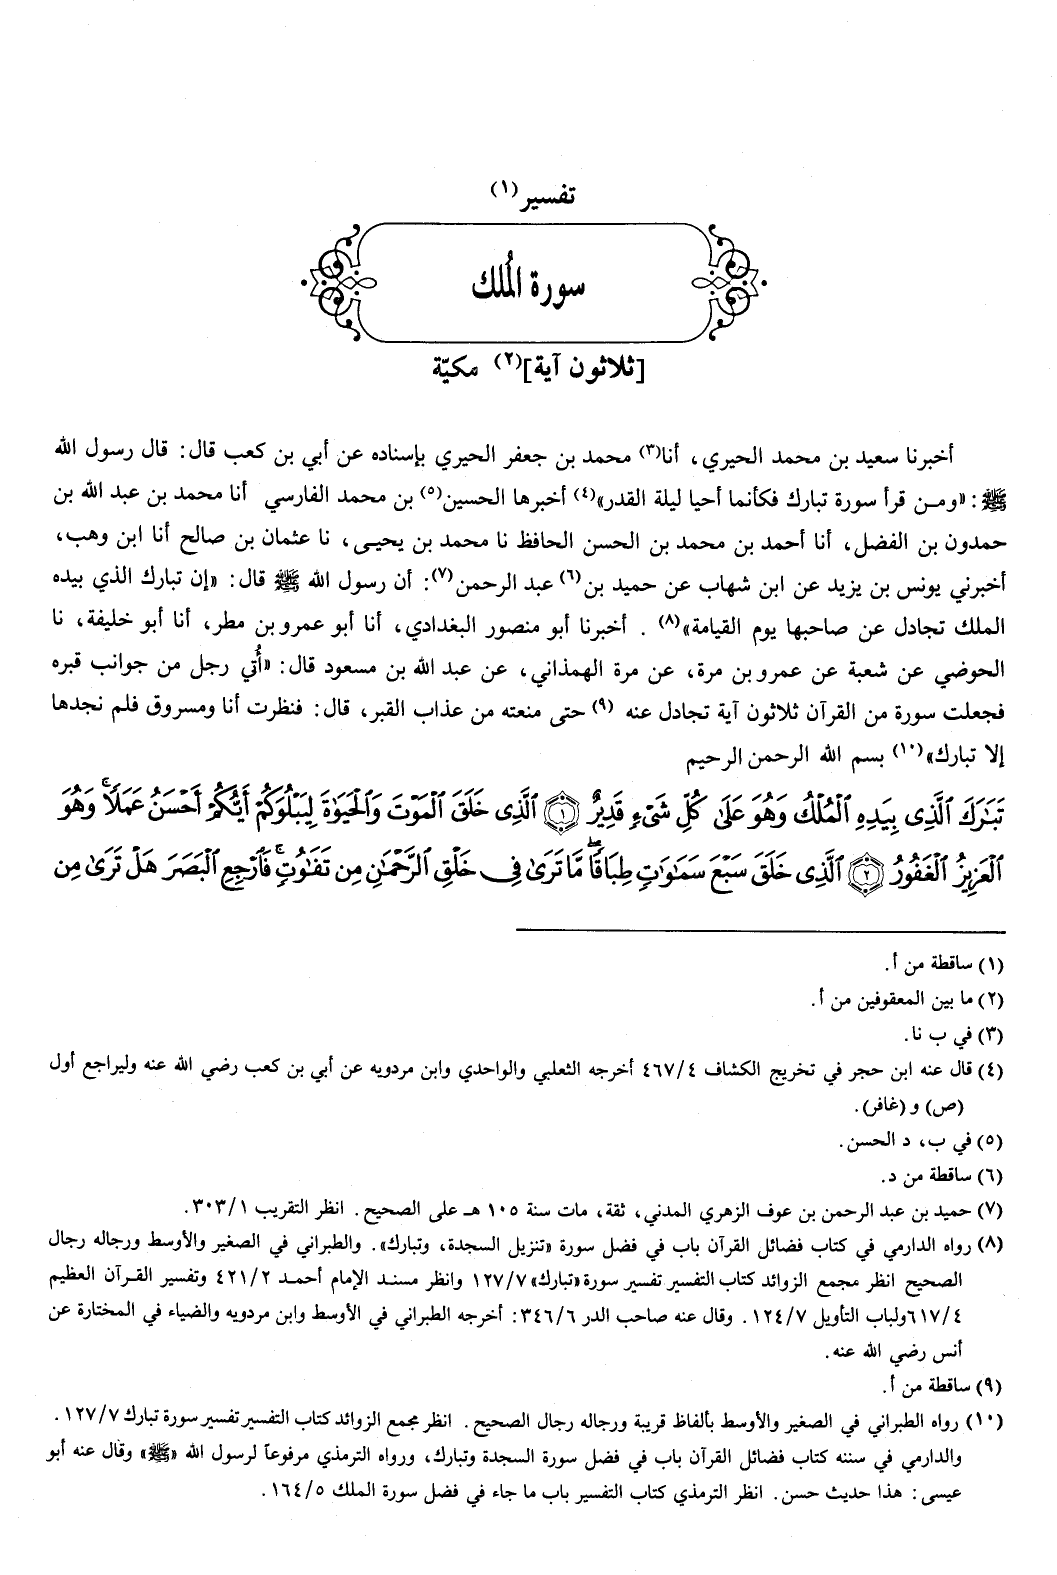 تفسير(١)
سورة المُلك
[ثلاثون آية](٢) مكيّة
أخبرنا سعيد بن محمد الحيري، أنا(٣) محمد بن جعفر الحيري بإسناده عن أبي بن كعب قال: قال رسول الله
ﷺ: «ومـن قرأ سورة تبارك فكأنما أحيا ليلة القدر»(٤) أخبرها الحسين(٥) بن محمد الفارسي أنا محمد بن عبد الله بن
حمدون بن الفضل، أنا أحمد بن محمد بن الحسن الحافظ نا محمد بن يحيى، نا عثمان بن صالح أنا ابن وهب،
أخبرني يونس بن يزيد عن ابن شهاب عن حميد بن(٦) عبد الرحمن(٧): أن رسول الله ﷺ قال: «إن تبارك الذي بيده
الملك تجادل عن صاحبها يوم القيامة»(٨) . أخبرنا أبو منصور البغدادي، أنا أبو عمرو بن مطر، أنا أبو خليفة، نا
الحوضي عن شعبة عن عمرو بن مرة، عن مرة الهمذاني، عن عبد الله بن مسعود قال: «أُتي رجل من جوانب قبره
فجعلت سورة من القرآن ثلاثون آية تجادل عنه (٩) حتى منعته من عذاب القبر، قال: فنظرت أنا ومسروق فلم نجدها
إلا تبارك»(١٠) بسم الله الرحمن الرحيم
تَبَٰرَكَ ٱلَّذِى بِيَدِهِ ٱلْمُلْكُ وَهُوَ عَلَىٰ كُلِّ شَىْءٍ قَدِيرٌ ١ ٱلَّذِى خَلَقَ ٱلْمَوْتَ وَٱلْحَيَوٰةَ لِيَبْلُوَكُمْ أَيُّكُمْ أَحْسَنُ عَمَلًا ۚ وَهُوَ
ٱلْعَزِيزُ ٱلْغَفُورُ ٢ ٱلَّذِى خَلَقَ سَبْعَ سَمَٰوَٰتٍ طِبَاقًا ۖ مَّا تَرَىٰ فِى خَلْقِ ٱلرَّحْمَٰنِ مِن تَفَٰوُتٍ ۖ فَٱرْجِعِ ٱلْبَصَرَ هَلْ تَرَىٰ مِن
(١) ساقطة من أ.
(٢) ما بين المعقوفين من أ.
(٣) في ب نا.
(٤) قال عنه ابن حجر في تخريج الكشاف ٤/‏٤٦٧ أخرجه الثعلبي والواحدي وابن مردويه عن أبي بن كعب رضي الله عنه وليراجع أول
(ص) و (غافر).
(٥) في ب، د الحسن.
(٦) ساقطة من د.
(٧) حميد بن عبد الرحمن بن عوف الزهري المدني، ثقة، مات سنة ١٠٥ هـ على الصحيح. انظر التقريب ١/‏٣٠٣.
(٨) رواه الدارمي في كتاب فضائل القرآن باب في فضل سورة «تنزيل السجدة، وتبارك». والطبراني في الصغير والأوسط ورجاله رجال
الصحيح انظر مجمع الزوائد كتاب التفسير تفسير سورة «تبارك» ٧/‏١٢٧ وانظر مسنـد الإمام أحمـد ٢/‏٤٢١ وتفسير القـرآن العظيم
٤/‏٦١٧ولباب التأويل ٧/‏١٢٤. وقال عنه صاحب الدر ٦/‏٣٤٦: أخرجه الطبراني في الأوسط وابن مردويه والضياء في المختارة عن
أنس رضي الله عنه.
(٩) ساقطة من أ.
(١٠) رواه الطبراني في الصغير والأوسط بألفاظ قريبة ورجاله رجال الصحيح. انظر مجمع الزوائد كتاب التفسير تفسير سورة تبارك ٧/‏١٢٧.
والدارمي في سننه كتاب فضائل القرآن باب في فضل سورة السجدة وتبارك، ورواه الترمذي مرفوعاً لرسول الله «ﷺ» وقال عنه أبو
عيسى: هذا حديث حسن. انظر الترمذي كتاب التفسير باب ما جاء في فضل سورة الملك ٥/‏١٦٤.